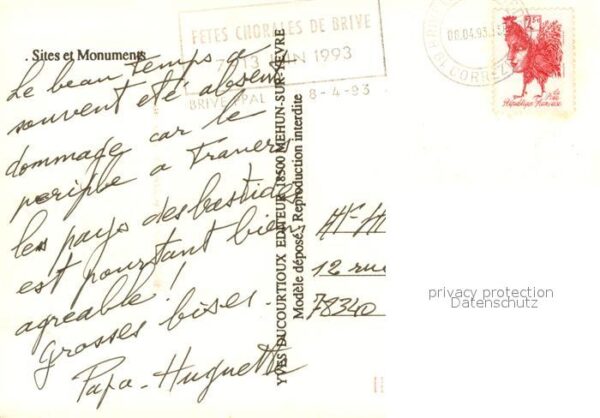 . Sites et Monuments
Le beau temps a
souvent été absent
dommage car le
periple a travers
les pays des bastides
est pourtant bien
agreable !
Grosses bises.
Papa - Huguette
YVES DUCOURTIOUX EDITEUR 18500 MEHUN-SUR-YEVRE
Modèle déposé. Reproduction interdite
FETES CHORALES DE BRIVE
7 13 JUIN 1993
BRIVE PPAL 8-4-93
08.04.93
CORREZE
2,50
République Française
12 rue
78340
privacy protection
Datenschutz